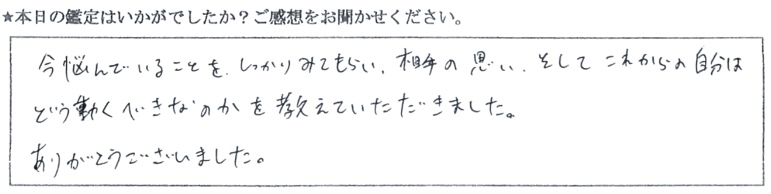 ★本日の鑑定はいかがでしたか？ご感想をお聞かせください。
今悩んでいることを、しっかりみてもらい、相手の思い、そしてこれからの自分は
どう動くべきなのかを教えていただきました。
ありがとうございました。